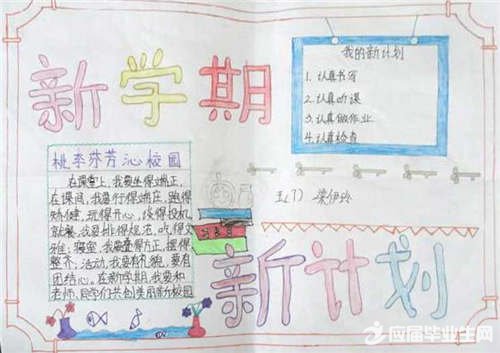 新学期
我的新计划
1. 认真书写
2. 认真听课
3. 认真做作业
4. 认真检查
桃李芬芳沁校园
在课堂上，我要坐得端正，
在课间，我要行得端庄，跑得
矫健，玩得开心，谈得投机
就餐，我要排得悠, 吃得文
雅，寝室，我要叠得方正，摆得
整齐，活动，我要有礼貌，要有
团结心。在新学期，我要和
老师、同学们共创美丽的校园
五(7) 梁伊玲
新计划
应届毕业生网